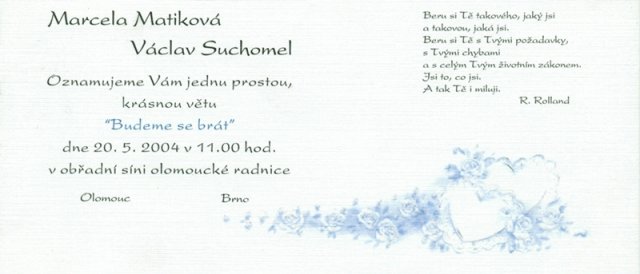 Marcela Matiková
Václav Suchomel
Oznamujeme Vám jednu prostou,
krásnou větu
"Budeme se brát"
dne 20. 5. 2004 v 11.00 hod.
v obřadní síni olomoucké radnice
Olomouc Brno
Beru si Tě takového, jaký jsi
a takovou, jaká jsi.
Beru si Tě s Tvými požadavky,
s Tvými chybami
a s celým Tvým životním zákonem.
Jsi to, co jsi.
A tak Tě i miluji.
R. Rolland